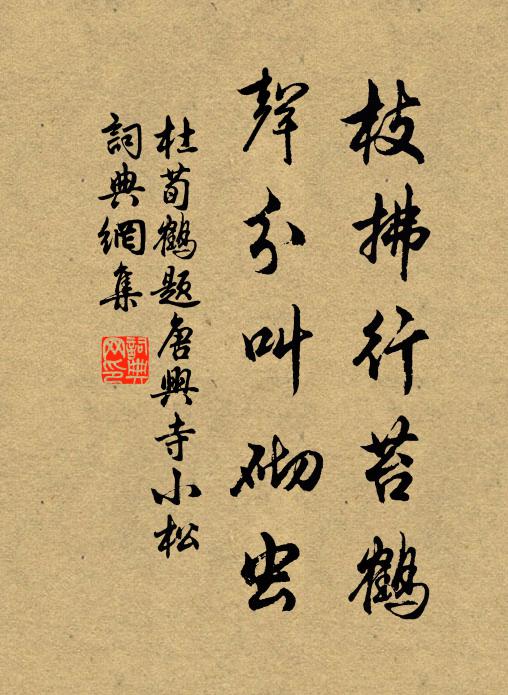 枝拂行苔鶴
聲分叫砌虫
杜荀鶴題唐興寺小松
詞典網集
詞典網印